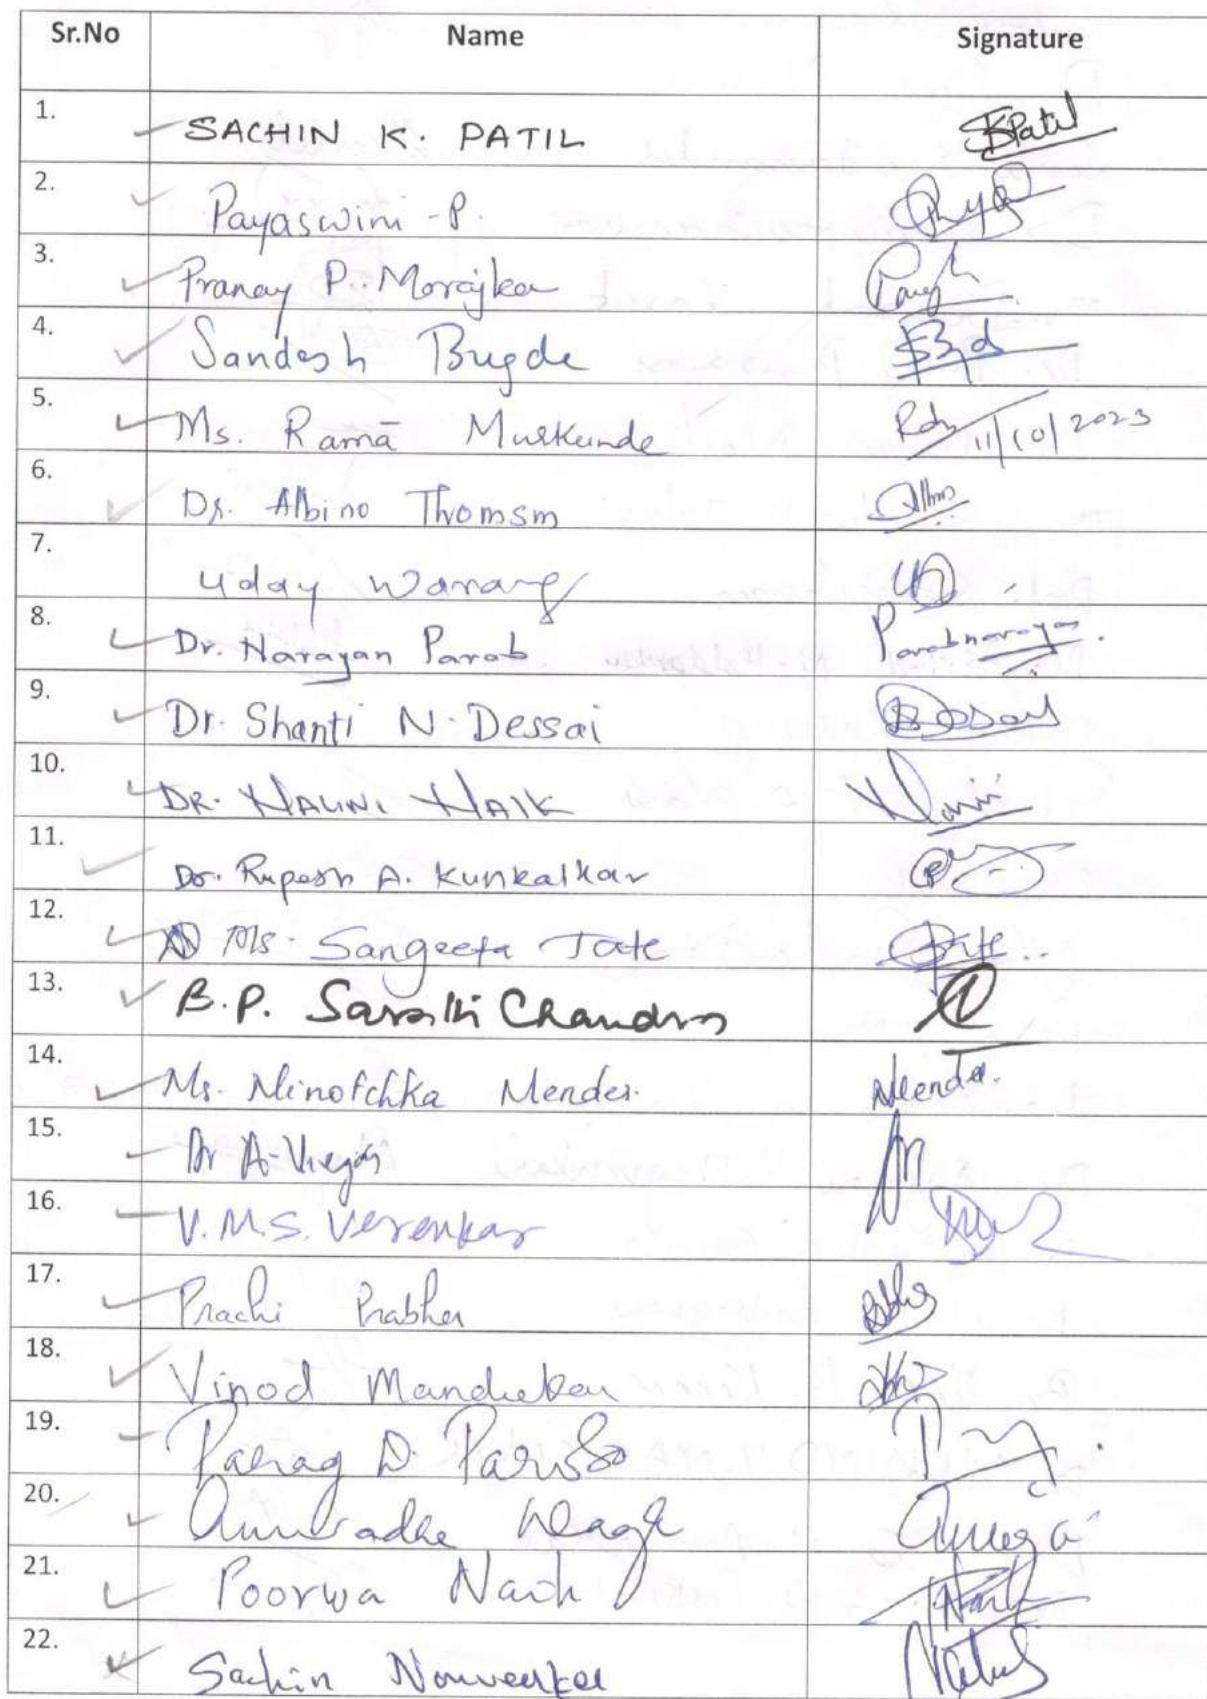 Sr.No Name Signature
1. SACHIN K. PATIL SKPatil
2. Payaswini - P.
3. Pranay P. Morajkar
4. Sandesh Bugde
5. Ms. Ramā Murkunde 11/10/2023
6. Dr. Albino Thomsm
7. Uday Warang
8. Dr. Narayan Parab Parabnarayan
9. Dr. Shanti N. Dessai Dessai
10. DR. NALINI NAIK
11. Dr. Rupesh A. Kunkalkar
12. Ms. Sangeeta Tate
13. B.P. Sarathi Chandra
14. Ms. Minotchka Mendes. Mendes.
15. Dr A. Viegas
16. V.M.S. Verenkar
17. Prachi Prabhu
18. Vinod Mandrekar
19. Parag D.
20. Anuradha Wagle
21. Poorwa Naik Naik
22. Sachin